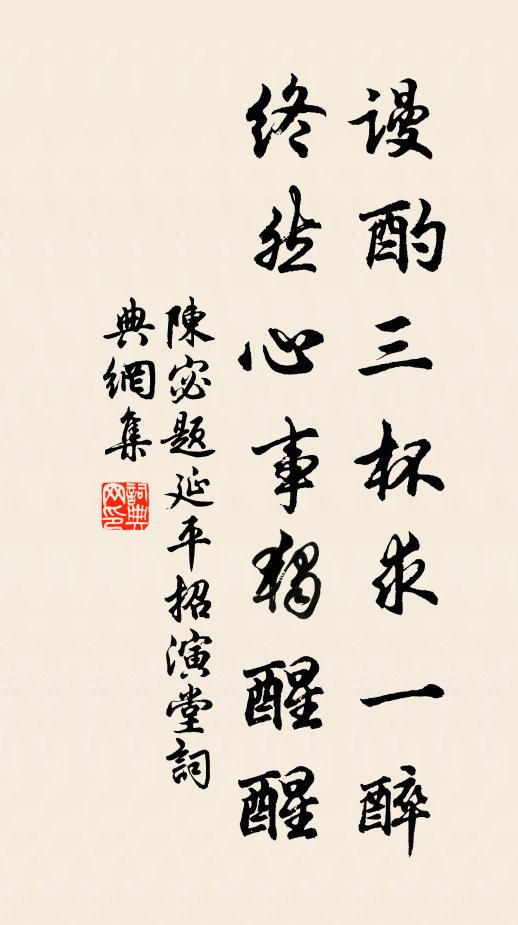 謾酌三杯求一醉
終然心事獨醒醒
陳宓題延平招演堂詞
典網集
詞典网印